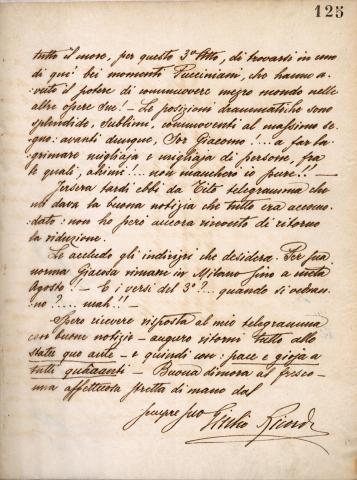 125
tutto il more, per questo 3º Atto, di trovarsi in uno
di quei bei momenti Pucciniani, che hanno a-
vuto il potere di commuovere mezzo mondo nelle
altre opere Sue! - Le posizioni drammatiche sono
splendide, sublimi, commoventi al massimo se-
gno: avanti dunque, Sor Giacomo!... a far la-
grimare migliaja e migliaja di persone, fra
le quali, ahimè! non mancherò io pure!! -
Jersera tardi ebbi da Tito telegramma che
mi dava la buona notizia che tutto era accomo-
dato: non ho però ancora ricevuto di ritorno
la riduzione.
Le accludo gli indirizzi che desidera. Per sua
norma Giacosa rimane in Milano fino a metà
Agosto! - E i versi del 3º?... quando si vedran-
no?.... mah!! -
Spero ricevere risposta al mio telegramma
con buone notizie - auguro ritorni tutto allo
statu quo ante - e quindi con: pace e gioja a
tutti quanti - Buona dimora al fresco -
una affettuosa stretta di mano dal
sempre suo Giulio Ricordi